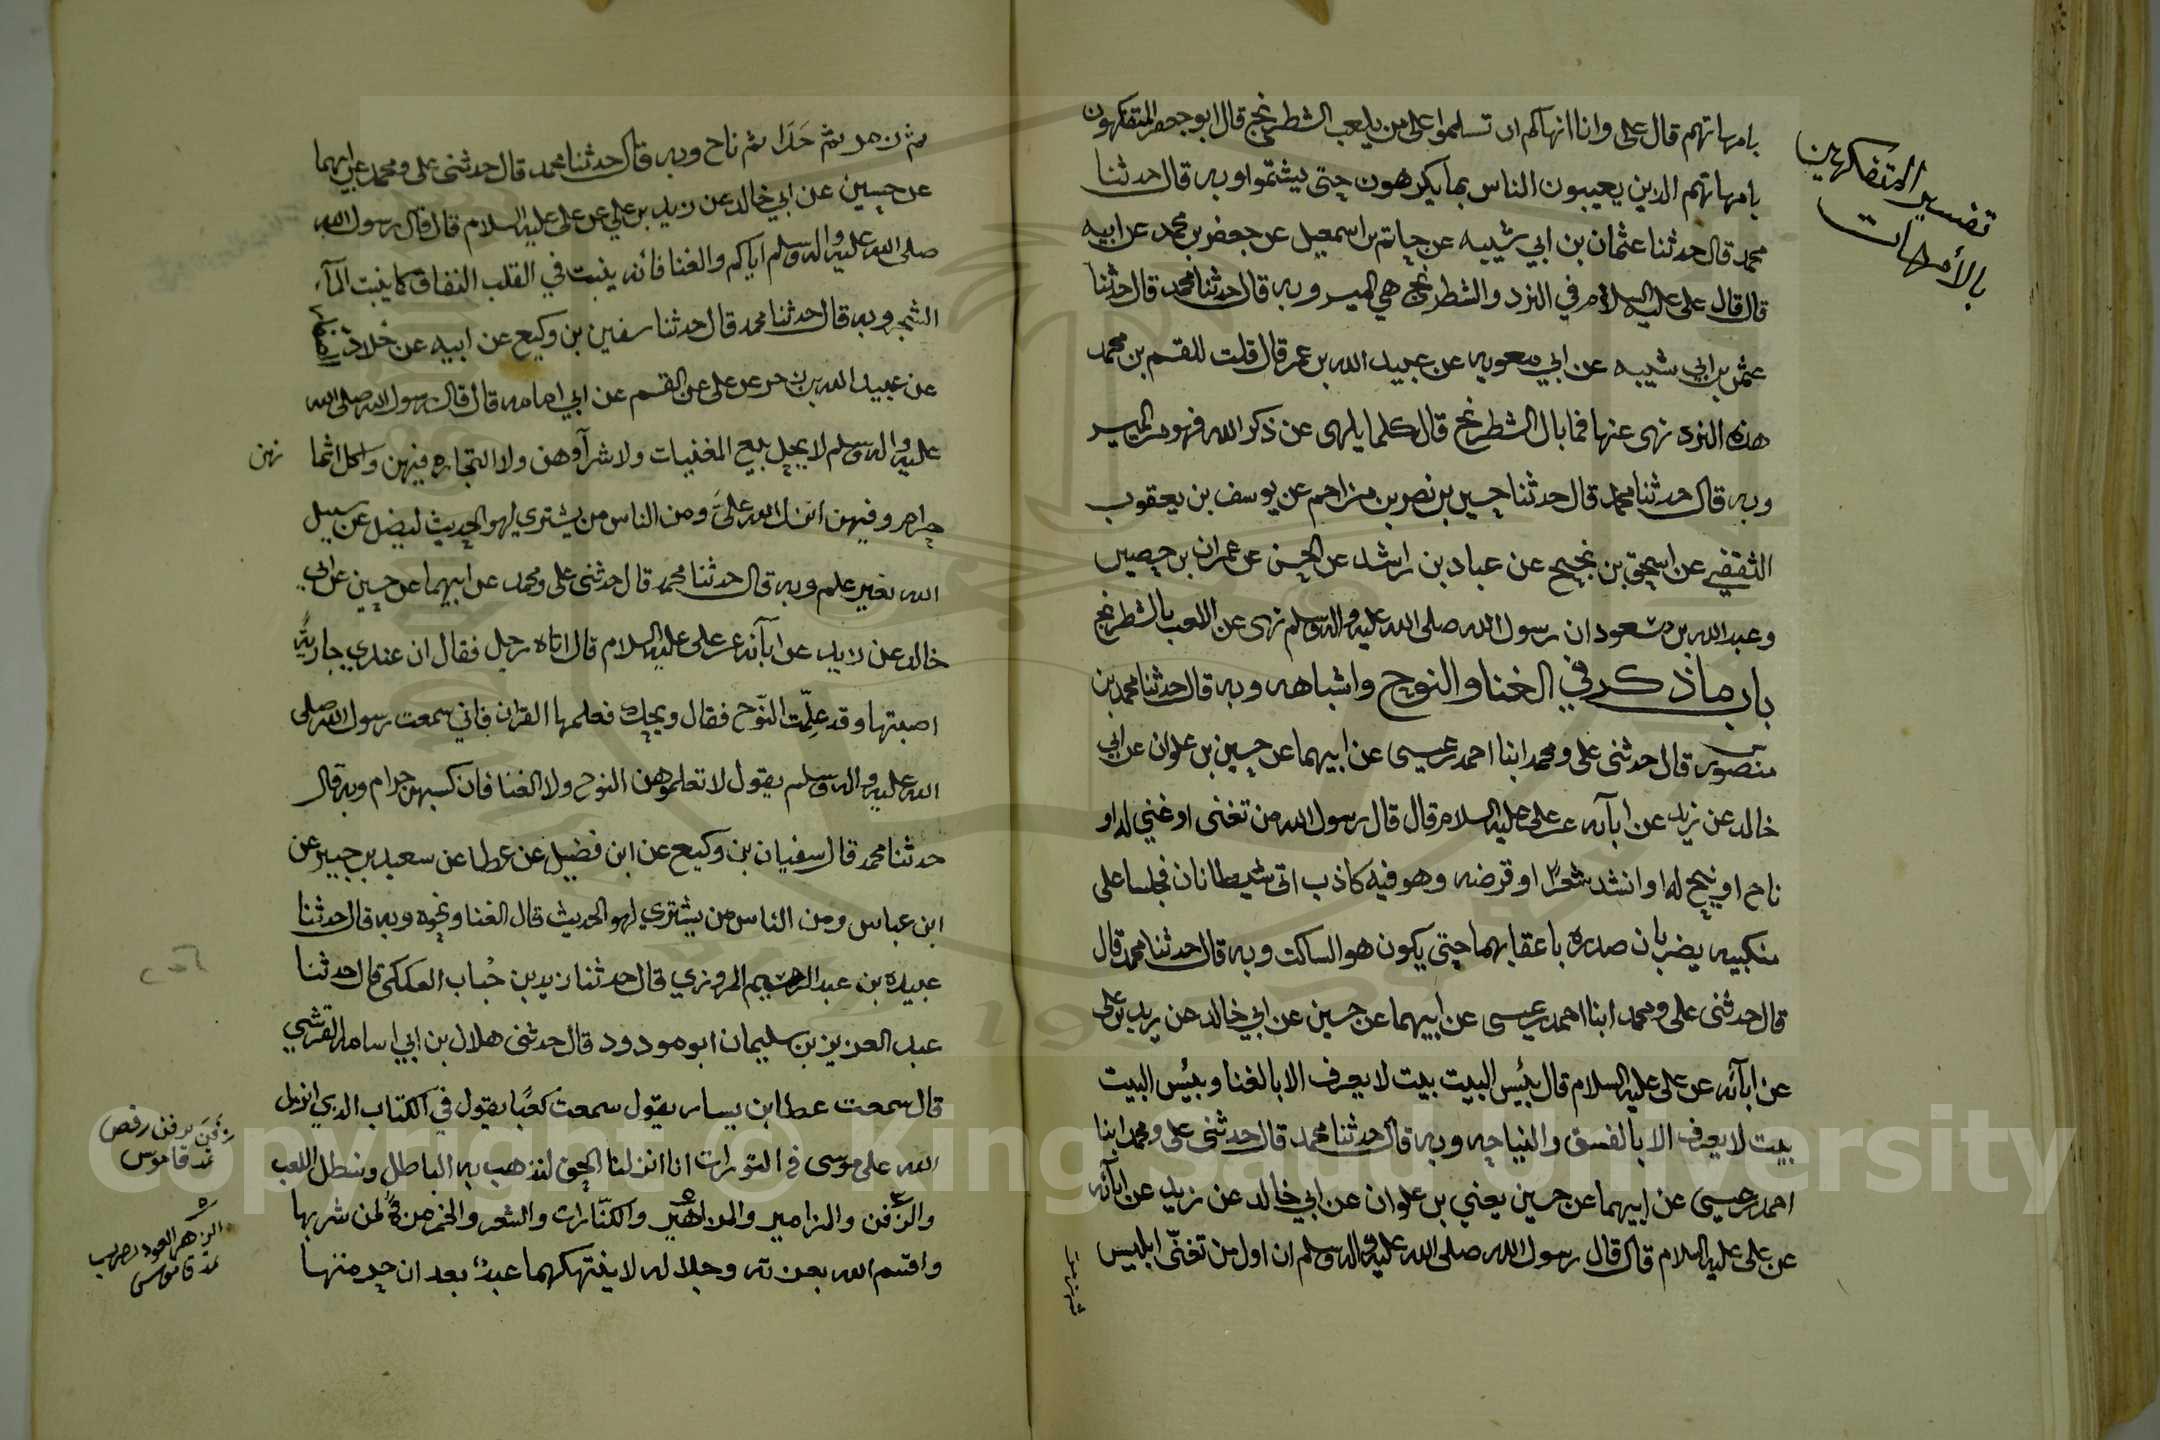 بامهاتهم قال علي وانا انهاكم ان تسلموا على من يلعب الشطرنج قال ابو جعفر المتفكهون
بامهاتهم الذين يعيبون الناس بما يكرهون حتى يشتموا وبه قال حدثنا
محمد قال حدثنا عثمان بن ابي شيبه عن حاتم بن اسمعيل عن جعفر بن محمد عن ابيه
قال قال علي عليه السلام في النرد والشطرنج هي الميسر وبه قال حدثنا محمد قال حدثنا
عثمن بن ابي شيبه عن ابي معويه عن عبيد الله بن عمر قال قلت للقسم بن محمد
هذه النرد نهى عنها فما بال الشطرنج قال كلما يلهى عن ذكر الله فهو من الميسر
وبه قال حدثنا محمد قال حدثنا حسين بن نصر بن مزاحم عن يوسف بن يعقوب
الثقفي عن اسحق بن نجيح عن عباد بن راشد عن الحسن عن عمران بن حصين
وعبد الله بن مسعود ان رسول الله صلى الله عليه واله وسلم نهى عن اللعب بالشطرنج
باب ما ذكر في الغنا والنوح واشباهه وبه قال حدثنا محمد بن
منصور قال حدثني علي ومحمد ابنا احمد بن عيسى عن ابيهما عن حسين بن علوان عن ابي
خالد عن زيد عن ابآئه عن علي عليه السلام قال قال رسول الله من تغنى او غني له او
ناح او نيح له او انشد شعرا او قرضه وهو فيه كاذب اتى شيطانان فجلسا على
منكبيه يضربان صدره باعقابهما حتى يكون هو الساكت وبه قال حدثنا محمد قال
قال حدثني علي ومحمد ابنا احمد بن عيسى عن ابيهما عن حسين عن ابي خالد عن زيد بن علي
عن ابآئه عن علي عليه السلام قال بئس البيت بيت لا يعرف الا بالغنا وبئس البيت
بيت لا يعرف الا بالفسق والنياحه وبه قال حدثنا محمد قال حدثني علي ومحمد ابنا
احمد بن عيسى عن ابيهما عن حسين يعني بن علوان عن ابي خالد عن زيد عن ابآئه
عن علي عليه السلام قال قال رسول الله صلى الله عليه واله وسلم ان اول من تغنّى ابليس
تفسير المتفكهين
بالأمهات
ثم زمر ثم حَدَا ثم ناح وبه قال حدثنا محمد قال حدثني علي ومحمد عن ابيهما
عن حسين عن ابي خالد عن زيد بن علي عن علي عليه السلام قال قال رسول الله
صلى الله عليه واله وسلم اياكم والغنا فانه ينبت في القلب النفاق كما ينبت المآء
الشجر وبه قال حدثنا محمد قال حدثنا سفين بن وكيع عن ابيه عن خلاد
عن عبيد الله بن زحر عن علي عن القسم عن ابي امامه قال قال رسول الله صلى الله
عليه واله وسلم لا يحل بيع المغنيات ولا شرآوهن ولا التجاره فيهن واكل اثما
نهن
حرام وفيهن انزل الله عليَّ ومن الناس من يشتري لهو الحديث ليضل عن سبيل
الله بغير علم وبه قال حدثنا محمد قال حدثني علي ومحمد عن ابيهما عن حسين عن ابي
خالد عن زيد عن ابآئه عن علي عليه السلام قال اتاه رجل فقال ان عندي جاريةً
اصبتها وقد علِّمت النّوح فقال ويحك فعلمها القران فاني سمعت رسول الله صلى
الله عليه واله وسلم يقول لا تعلموهن النوح ولا الغنا فان كسبهن حرام وبه قال
حدثنا محمد قال سفيان بن وكيع عن ابن فضيل عن عطا عن سعيد بن جبير عن
ابن عباس ومن الناس من يشتري لهو الحديث قال الغنا ونحوه وبه قال حدثنا
عبيده بن عبد الرحيم المروزي قال حدثنا زيد بن حُباب العكلي قال حدثنا
عبد العزيز بن سليمان ابو مودود قال حدثني هلال بن ابي اسامه القرشي
قال سمعت عطا بن يسار يقول سمعت كعبًا يقول في الكتاب الذي انزل
الله على موسى في التورات انا انزلنا الحق لنذهب به الباطل ونبطل اللعب
والزَّفن والمزامير والمزاهير والكنّارات والشعر والخمر من لمن شربها
واقسم الله بعزته وجلاله لا ينتهكهما عبدٌ بعد ان حرمتها
زَفَنَ يزفن رقص
تمت قاموس
المزهر العود يضرب
تمت قاموس
Copyright © King Saud University